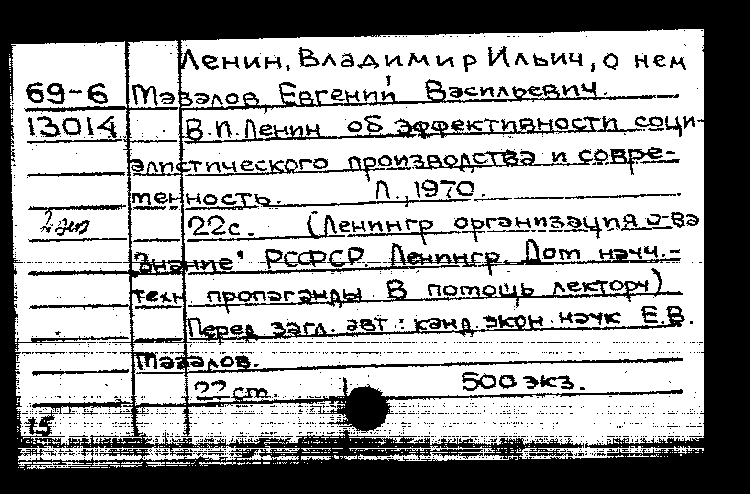 Ленин, Владимир Ильич, о нем
69-6 Мазалов, Евгений Васильевич.
13014 В.И.Ленин об эффективности соци-
алистического производства и совре-
менность. Л., 1970.
2 экз 22с. (Ленингр организация о-ва
"Знание" РСФСР. Ленингр. Дом научн.-
техн пропаганды В помощь лектору)
Перед загл. авт: канд. экон. наук Е.В.
Мазалов.
22 ст. 500 экз.
15